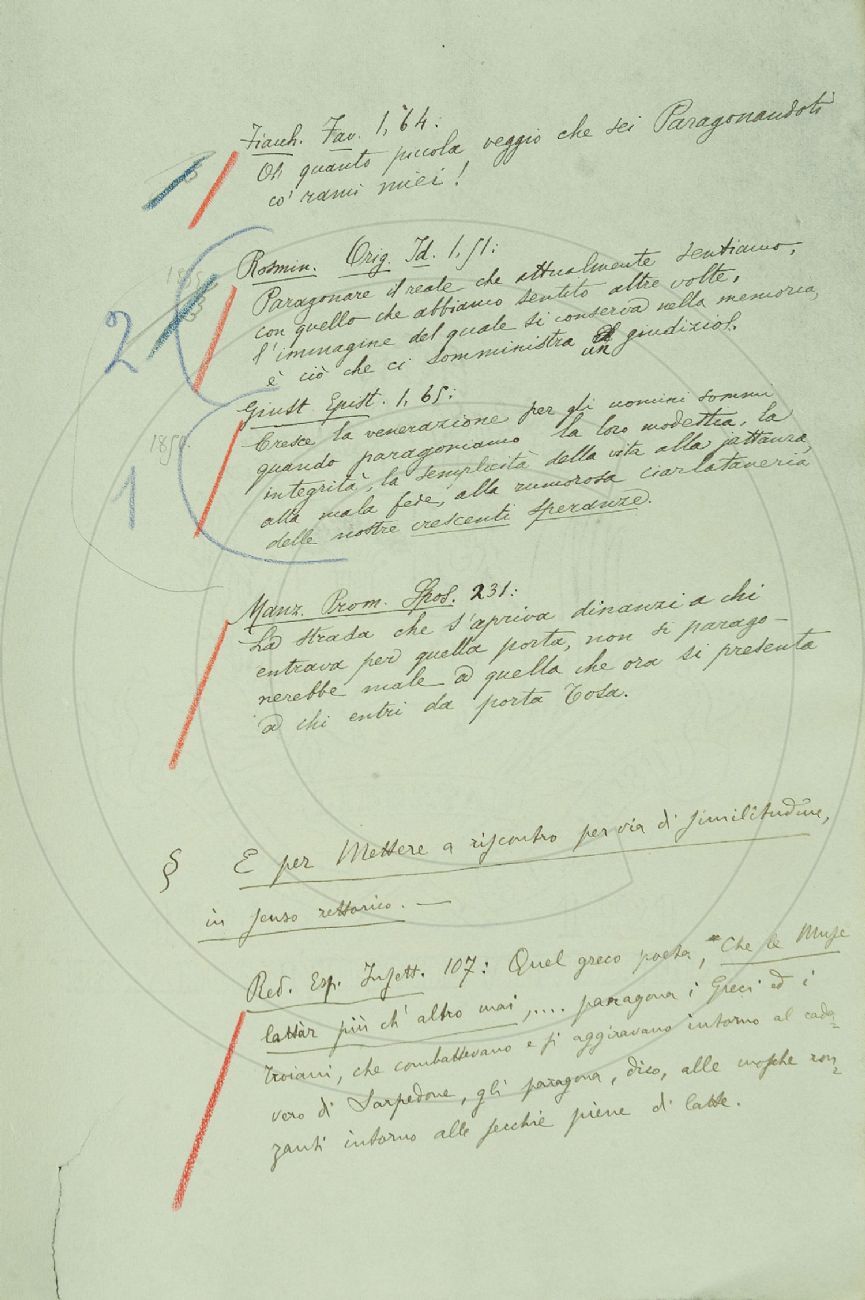 Fiacch. Fav. 1, 64:
Oh quanto piccola veggio che sei Paragonandoti
co' rami miei!
Rosmin. Orig. Id. 1, 51:
Paragonare il reale che attualmente sentiamo,
con quello che abbiamo sentito altre volte,
l'immagine del quale si conserva nella memoria,
è ciò che ci somministra un giudizio.
2
Giust. Epist. 1, 65:
Cresce la venerazione per gli uomini sommi
quando paragoniamo la loro modestia, la
integrità, la semplicità della vita alla jattanza,
alla mala fede, alla rumorosa ciarlataneria
delle nostre crescenti speranze.
185
1
Manz. Prom. Spos. 231:
La strada che s'apriva dinanzi a chi
entrava per quella porta, non si parago-
nerebbe male a quella che ora si presenta
a chi entri da porta Tosa.
§ E per Mettere a riscontro per via di similitudine,
in senso rettorico. —
Red. Esp. Insett. 107: Quel greco poeta, Che le Muse
lattàr più ch'altro mai,.... paragona i Greci ed i
Troiani, che combattevano e si aggiravano intorno al cada-
vero di Sarpedone, gli paragona, dico, alle mosche ron-
zanti intorno alle secchie piene di latte.